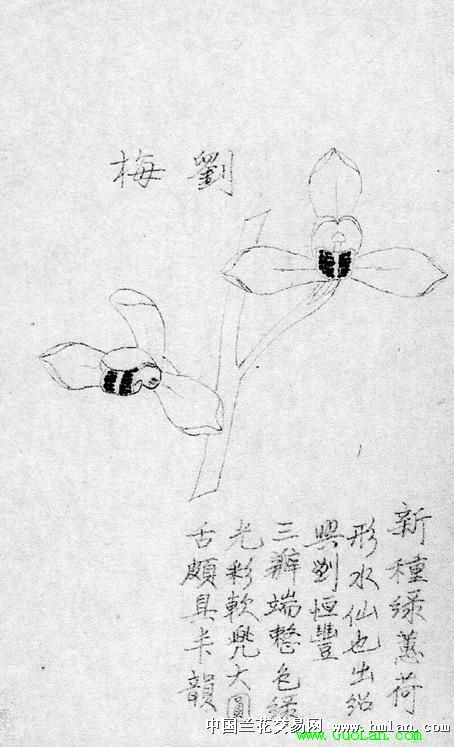 劉梅
新種綠蕙荷
形水仙也出紹
興劉恒豐
三瓣端整色綠
光彩軟兜大圓
舌頗具丰韻
中国兰花交易网 www.hmlan.com
www.GuoLan.com